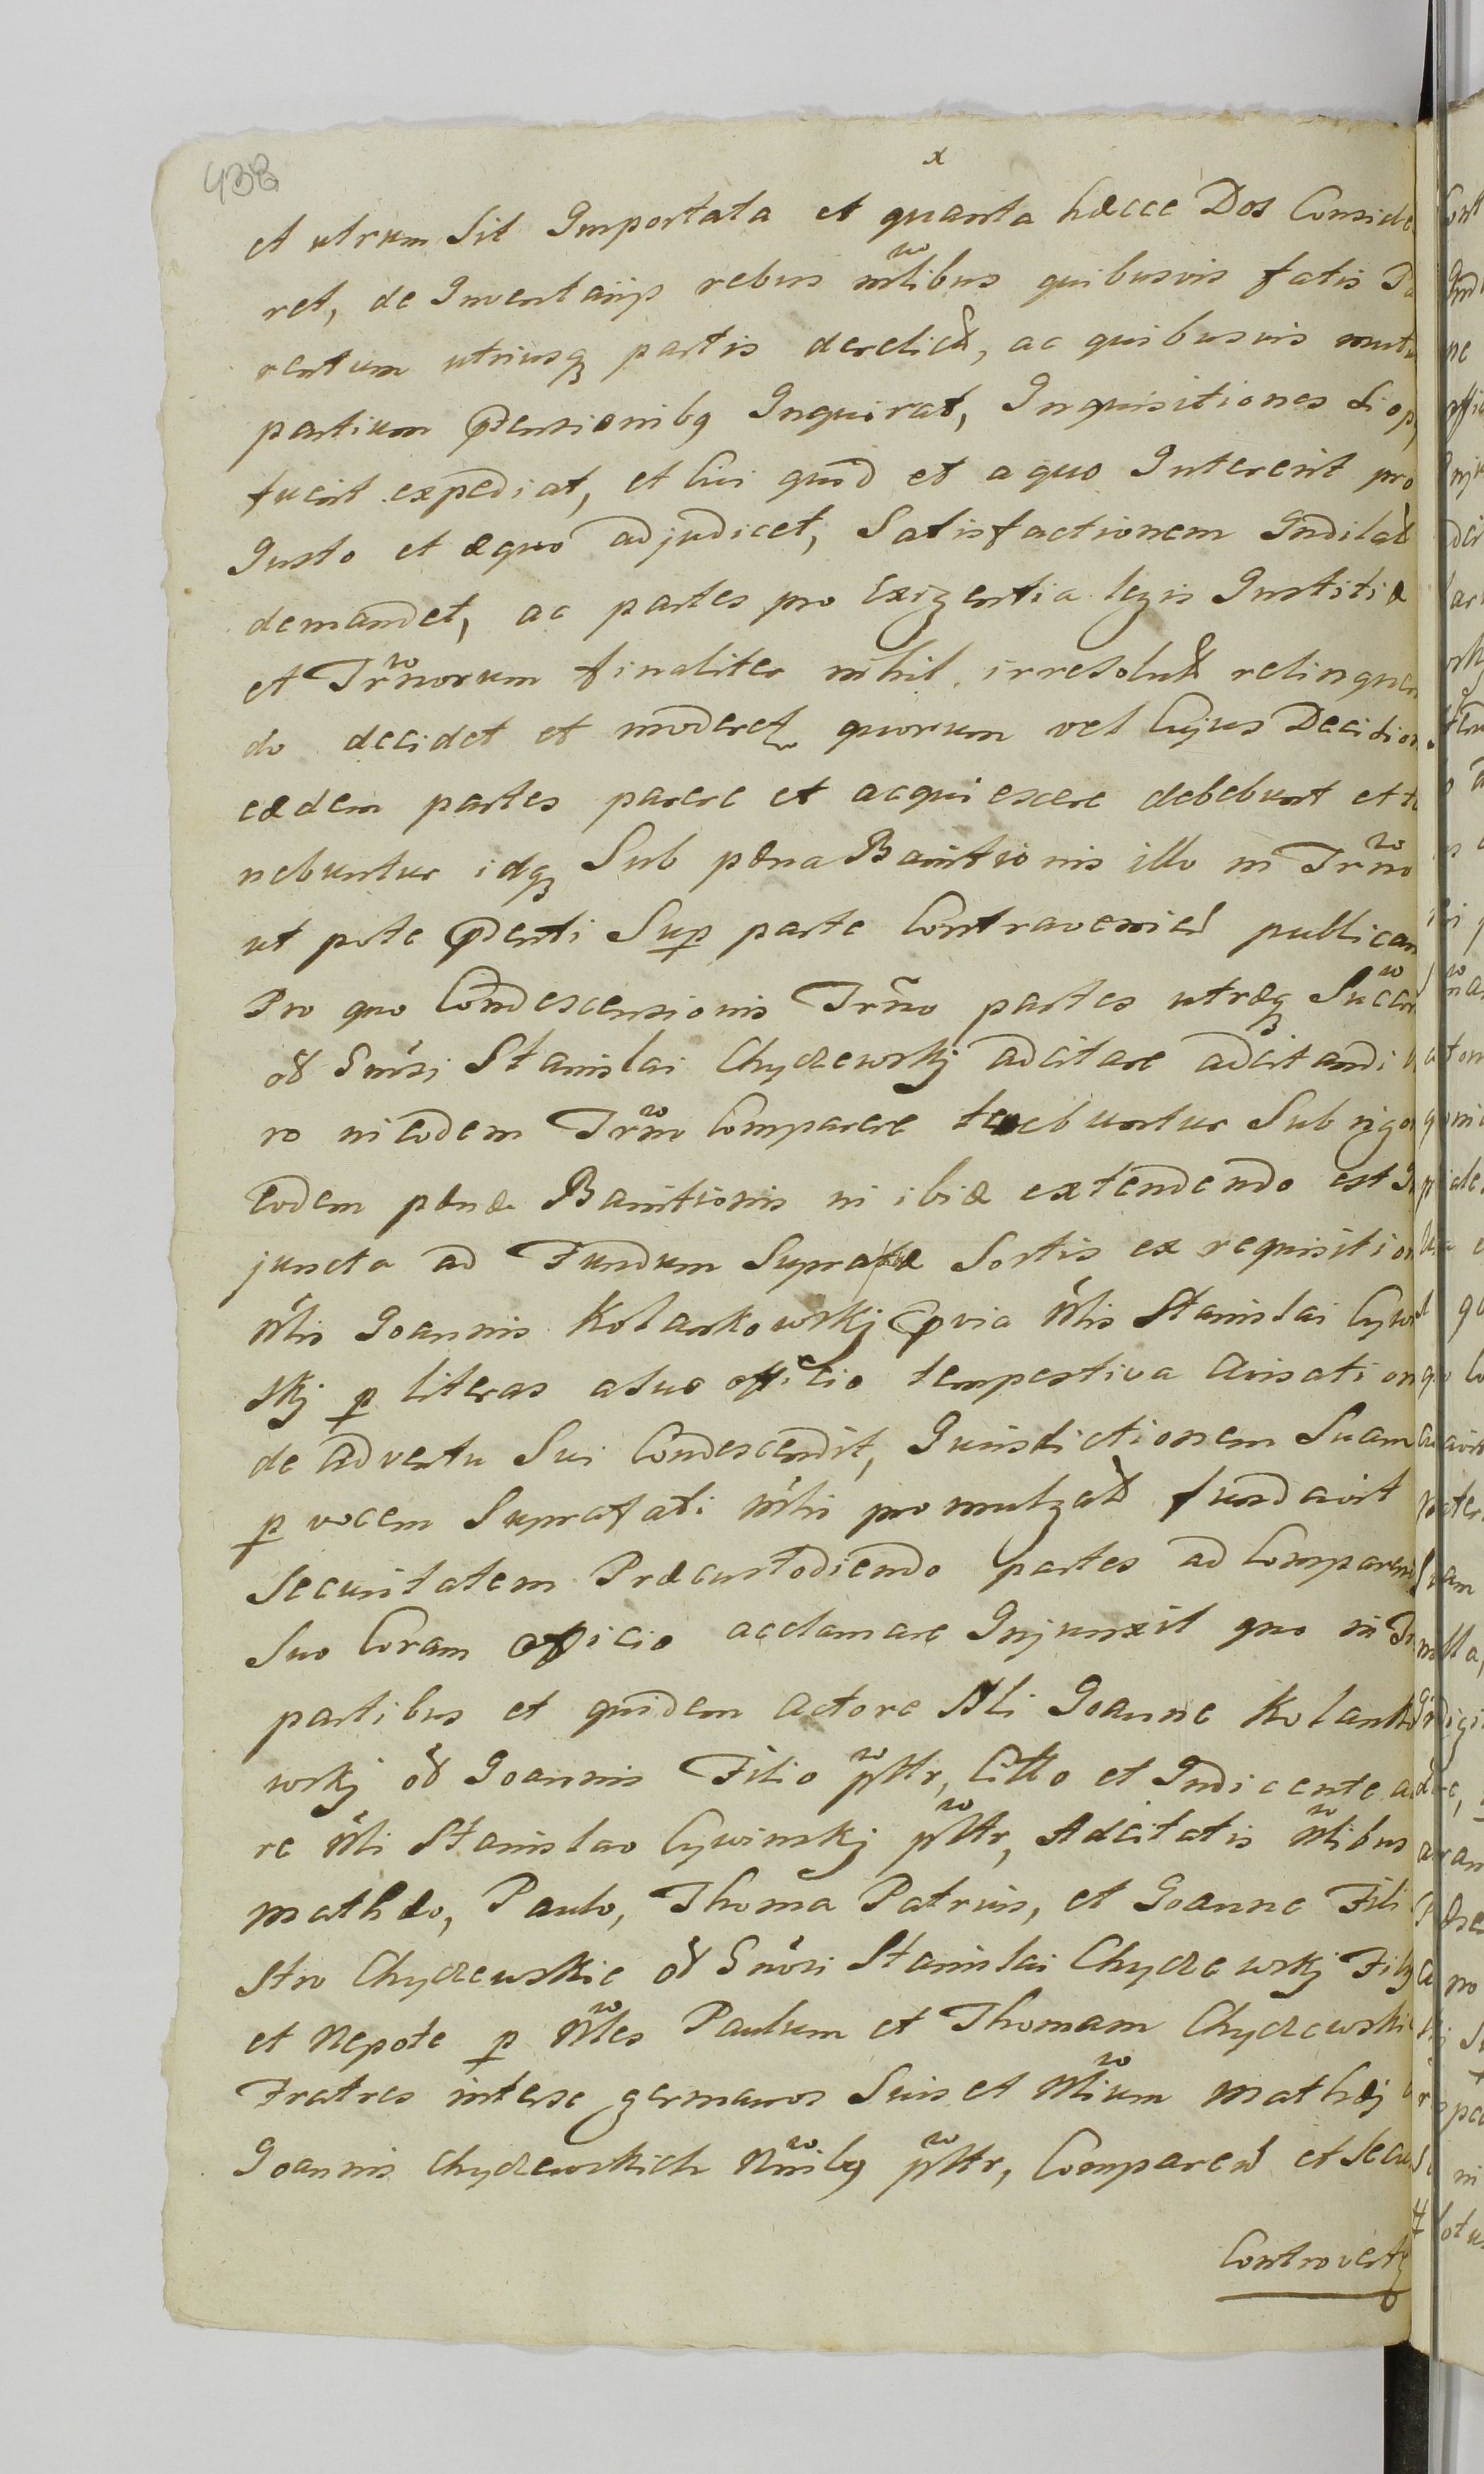 438
x
et utrum sit Importata et quanta hæcce Dos Conside
ret, de Inventarijs rebus mlibus quibusvis fatis Pa
rentum utriusq partis derelict, ac quibusvis mutu
partium ptensionibq Inquirat, Inquisitiones si op
fuerit expediat, et Cui quid et a quo Intererit pro
Justo et æquo adjudicet, Satisfactionem Indilat
demandet, ac partes pro exigentia legis Justitiæ
et Trnorum finaliter nihil irresolut relinquen
do decidet et moderet quorum vel Cujus Decision
eædem partes parere et acquiescere debebunt et te
nebuntur idq Sub pæna Bannitionis illo in Trno
ut pote pdenti Sup parte Contravenied publican
Pro quo Condescensionis Trno partes utræq Succ
od Gnosi Stanislai Chyczewskj adcitare adcitandi v
ro in eodem Trno Comparere tenebuntur Sub rigor
eodem pænæ Bannitionis in ibiæ extendendo est In
juncta ad Fundum Suprafatæ Sortis ex requisition
Nlis Joannis Kolankowskj pvia Nlis Stanislai Cywi
skj p literas a suo officio tempestiva Avisation
de adventu Sui Condescendit, Jurisdictionem Suam
p vocem Suprafati Mlis promulgat fundavit
Securitatem Præcustodiendo partes ad Comparen
Suo Coram officio acclamare Injunxit quo in Tr
partibus et quidem Actore Nli Joanne Kolanko
wskj od Joannis Filio pttr, Citto et Indicente a
re Nli Stanislao Cywinskj pttr, Adcitatis Nlibus
Mathæo, Paulo, Thoma Patruis, et Joanne Fili
stro Chyczewskie od Gnosi Stanislai Chyczewskj Filij
et Nepote p Nles Paulum et Thomam Chyczewskie
Fratres interse germanos Suis et Nlium Mathæj
Joannis Chyczewskich Nnibq pttr, Compared et Secu
Controvert